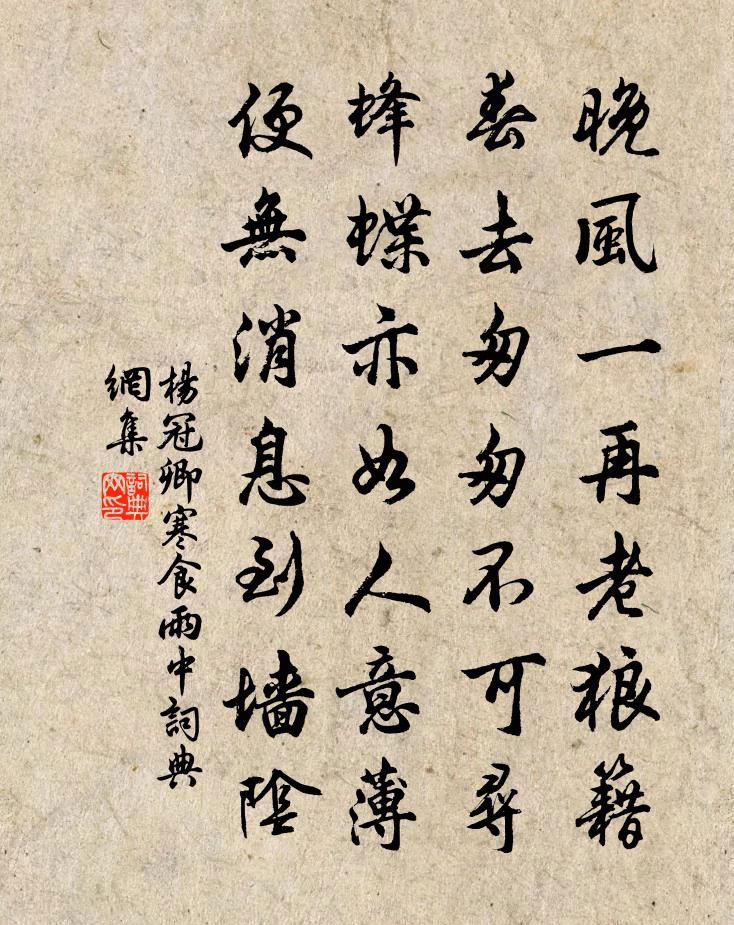 晚風一再老狼籍
春去匆匆不可尋
蜂蝶亦如人意薄
便無消息到墻陰
楊冠卿寒食雨中詞典
網集
詞典
网印